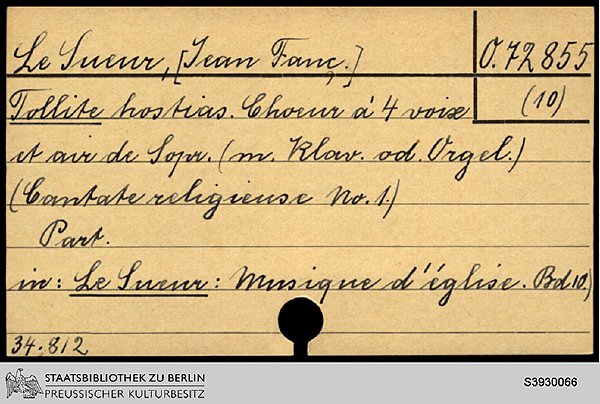 Le Sueur, [Jean Franç.]
O. 72 855
(10)
Tollite hostias. Choeur à 4 voix
et air de Sopr. (m. Klav. od. Orgel.)
(Cantate religieuse No. 1.)
Part.
in: Le Sueur: Musique d'église. Bd 10.)
34.812
STAATSBIBLIOTHEK ZU BERLIN
PREUSSISCHER KULTURBESITZ
S3930066